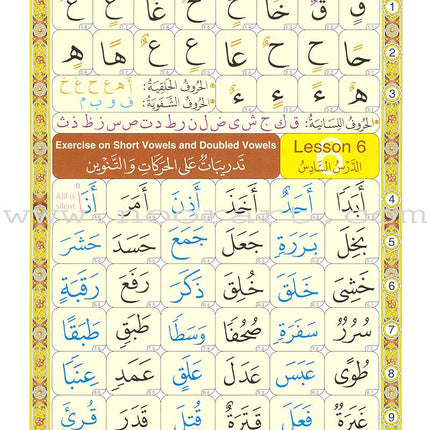 حًا حٍ حٌ عًا عٍ عٌ هًا هٍ
هٌ ءً ءٍ ءٌ الحُرُوفُ الحَلْقِيَّةُ: أ هـ ع ح غ خ
الحُرُوفُ الشَّفَوِيَّةُ: ف و ب م
الحُرُوفُ اللِّسَانِيَّةُ: ق ك ج ش ي ض ل ن ر ط د ت ص س ز ظ ذ ث
Exercise on Short Vowels and Doubled Vowels
Lesson 6
تَدْرِيبَاتٌ عَلَى الحَرَكَاتِ وَالتَّنْوِينِ
الدَّرْسُ السَّادِسُ
أَبَدًا أَحَدٌ أَخَذَ أَذِنَ أَمَرَ أَنَا
Alif is silent
بَخِلَ بَرَرَةٍ جَعَلَ جَمَعَ حَسَدَ حَشَرَ
خَشِيَ خَلَقَ خُلِقَ ذَكَرَ رَفَعَ رَقَبَةٍ
سُرُرٌ سَفَرَةٍ صُحُفًا وَسَطًا طَبَقٍ طَبَقًا
طُوًى عَبَسَ عَدَلَ عَلَقٍ عَمَدٍ عِنَبًا
غَبَرَةٌ فَعَلَ قَتَرَةٌ قُتِلَ قَدَرَ قُرِئَ